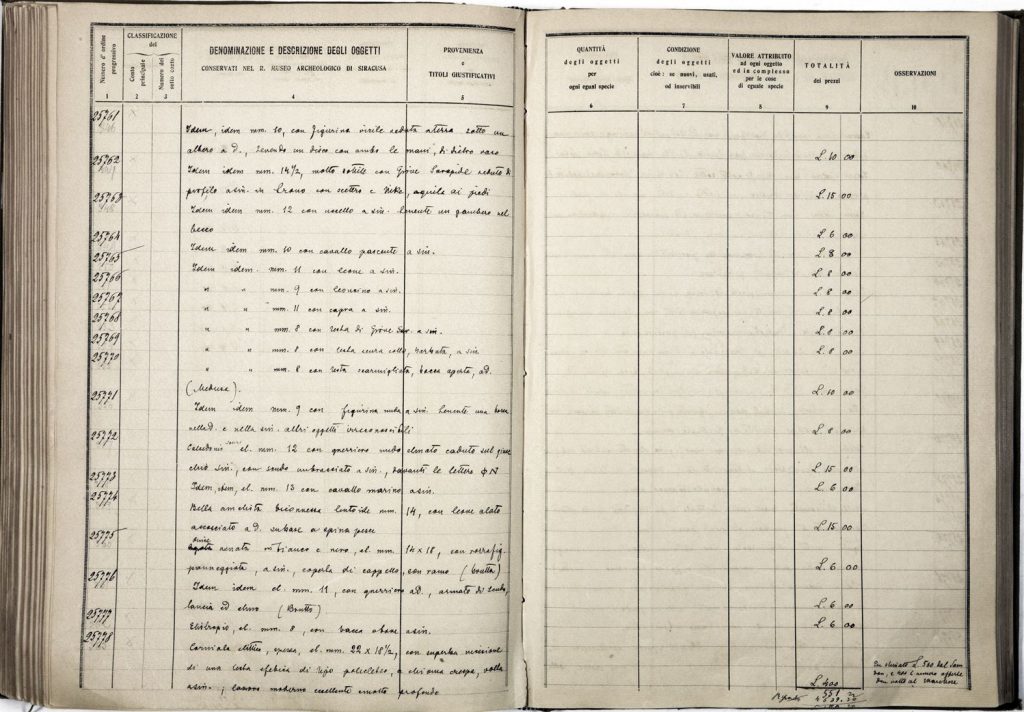 Numero d' ordine progressivo
CLASSIFICAZIONE
del
Conto principale
Numero del sotto conto
DENOMINAZIONE E DESCRIZIONE DEGLI OGGETTI
CONSERVATI NEL R. MUSEO ARCHEOLOGICO DI SIRACUSA
PROVENIENZA
e
TITOLI GIUSTIFICATIVI
1 2 3 4 5
25761
Idem, idem mm. 10, con figurina virile seduta a terra sotto un
albero a d., tenendo un disco con ambo le mani, di dietro vaso
25762
Idem idem mm. 14½, molto sottile con Giove Serapide seduto di
profilo a sin. in trono con scettro e Nike, aquila ai piedi
25763
Idem idem mm. 12 con uccello a sin. tenente un gambero nel
becco
25764
Idem idem mm. 10 con cavallo pascente a sin.
25765
Idem idem. mm. 11 con leone a sin.
25766
" " mm. 9 con leoncino a sin.
25767
" " mm. 11 con capra a sin.
25768
" " mm. 8 con testa di Giove Ser. a sin.
25769
" " mm. 8 con testa senza collo, barbata, a sin
25770
" " mm. 8 con testa scarmigliata, bocca aperta, a d.
(Medusa).
25771
Idem idem mm. 9 con figurina nuda a sin. tenente una
nella d. e nella sin. altri oggetti irriconoscibili
25772
Calcedonio el. mm. 12 con guerriero nudo elmato caduto sul
sin., con scudo imbracciato a sin., davanti le lettere ΦΝ
25773
Idem, idem, el. mm. 13 con cavallo marino a sin.
25774
Bella ametista biconvessa lentoide mm. 14, con leone alato
accosciato a d. su base a spina pesce
25775
venata bianco e nero, el. mm. 14 x 18, con rozza fig.
panneggiata, a sin., coperta di cappello, con ramo (brutta)
25776
Idem idem el. mm. 11, con guerriero a d., armato di scudo,
lancia ed elmo (Brutto)
25777
Elitropio, el. mm. 8, con a sin.
25778
Corniola ellittica, spessa, el. mm. 22 x 18½, con superba incisione
di una testa efebica di tipo policleteo, a chioma crespa, volta
a sin., lavoro moderno eccellente e molto profondo
QUANTITÀ
degli oggetti
per
ogni egual specie
CONDIZIONE
degli oggetti
cioè: se nuovi, usati,
od inservibili
VALORE ATTRIBUITO
ad ogni oggetto
ed in complesso
per le cose
di eguale specie
TOTALITÀ
dei prezzi
OSSERVAZIONI
6 7 8 9 10
L. 10 00
L. 15 00
L. 6 00
L. 8 00
L. 8 00
L. 8 00
L. 8 00
L. 8 00
L. 8 00
L. 10 00
L. 8 00
L. 15 00
L. 6 00
L. 15 00
L. 6 00
L. 6 00
L. 6 00
L. 400